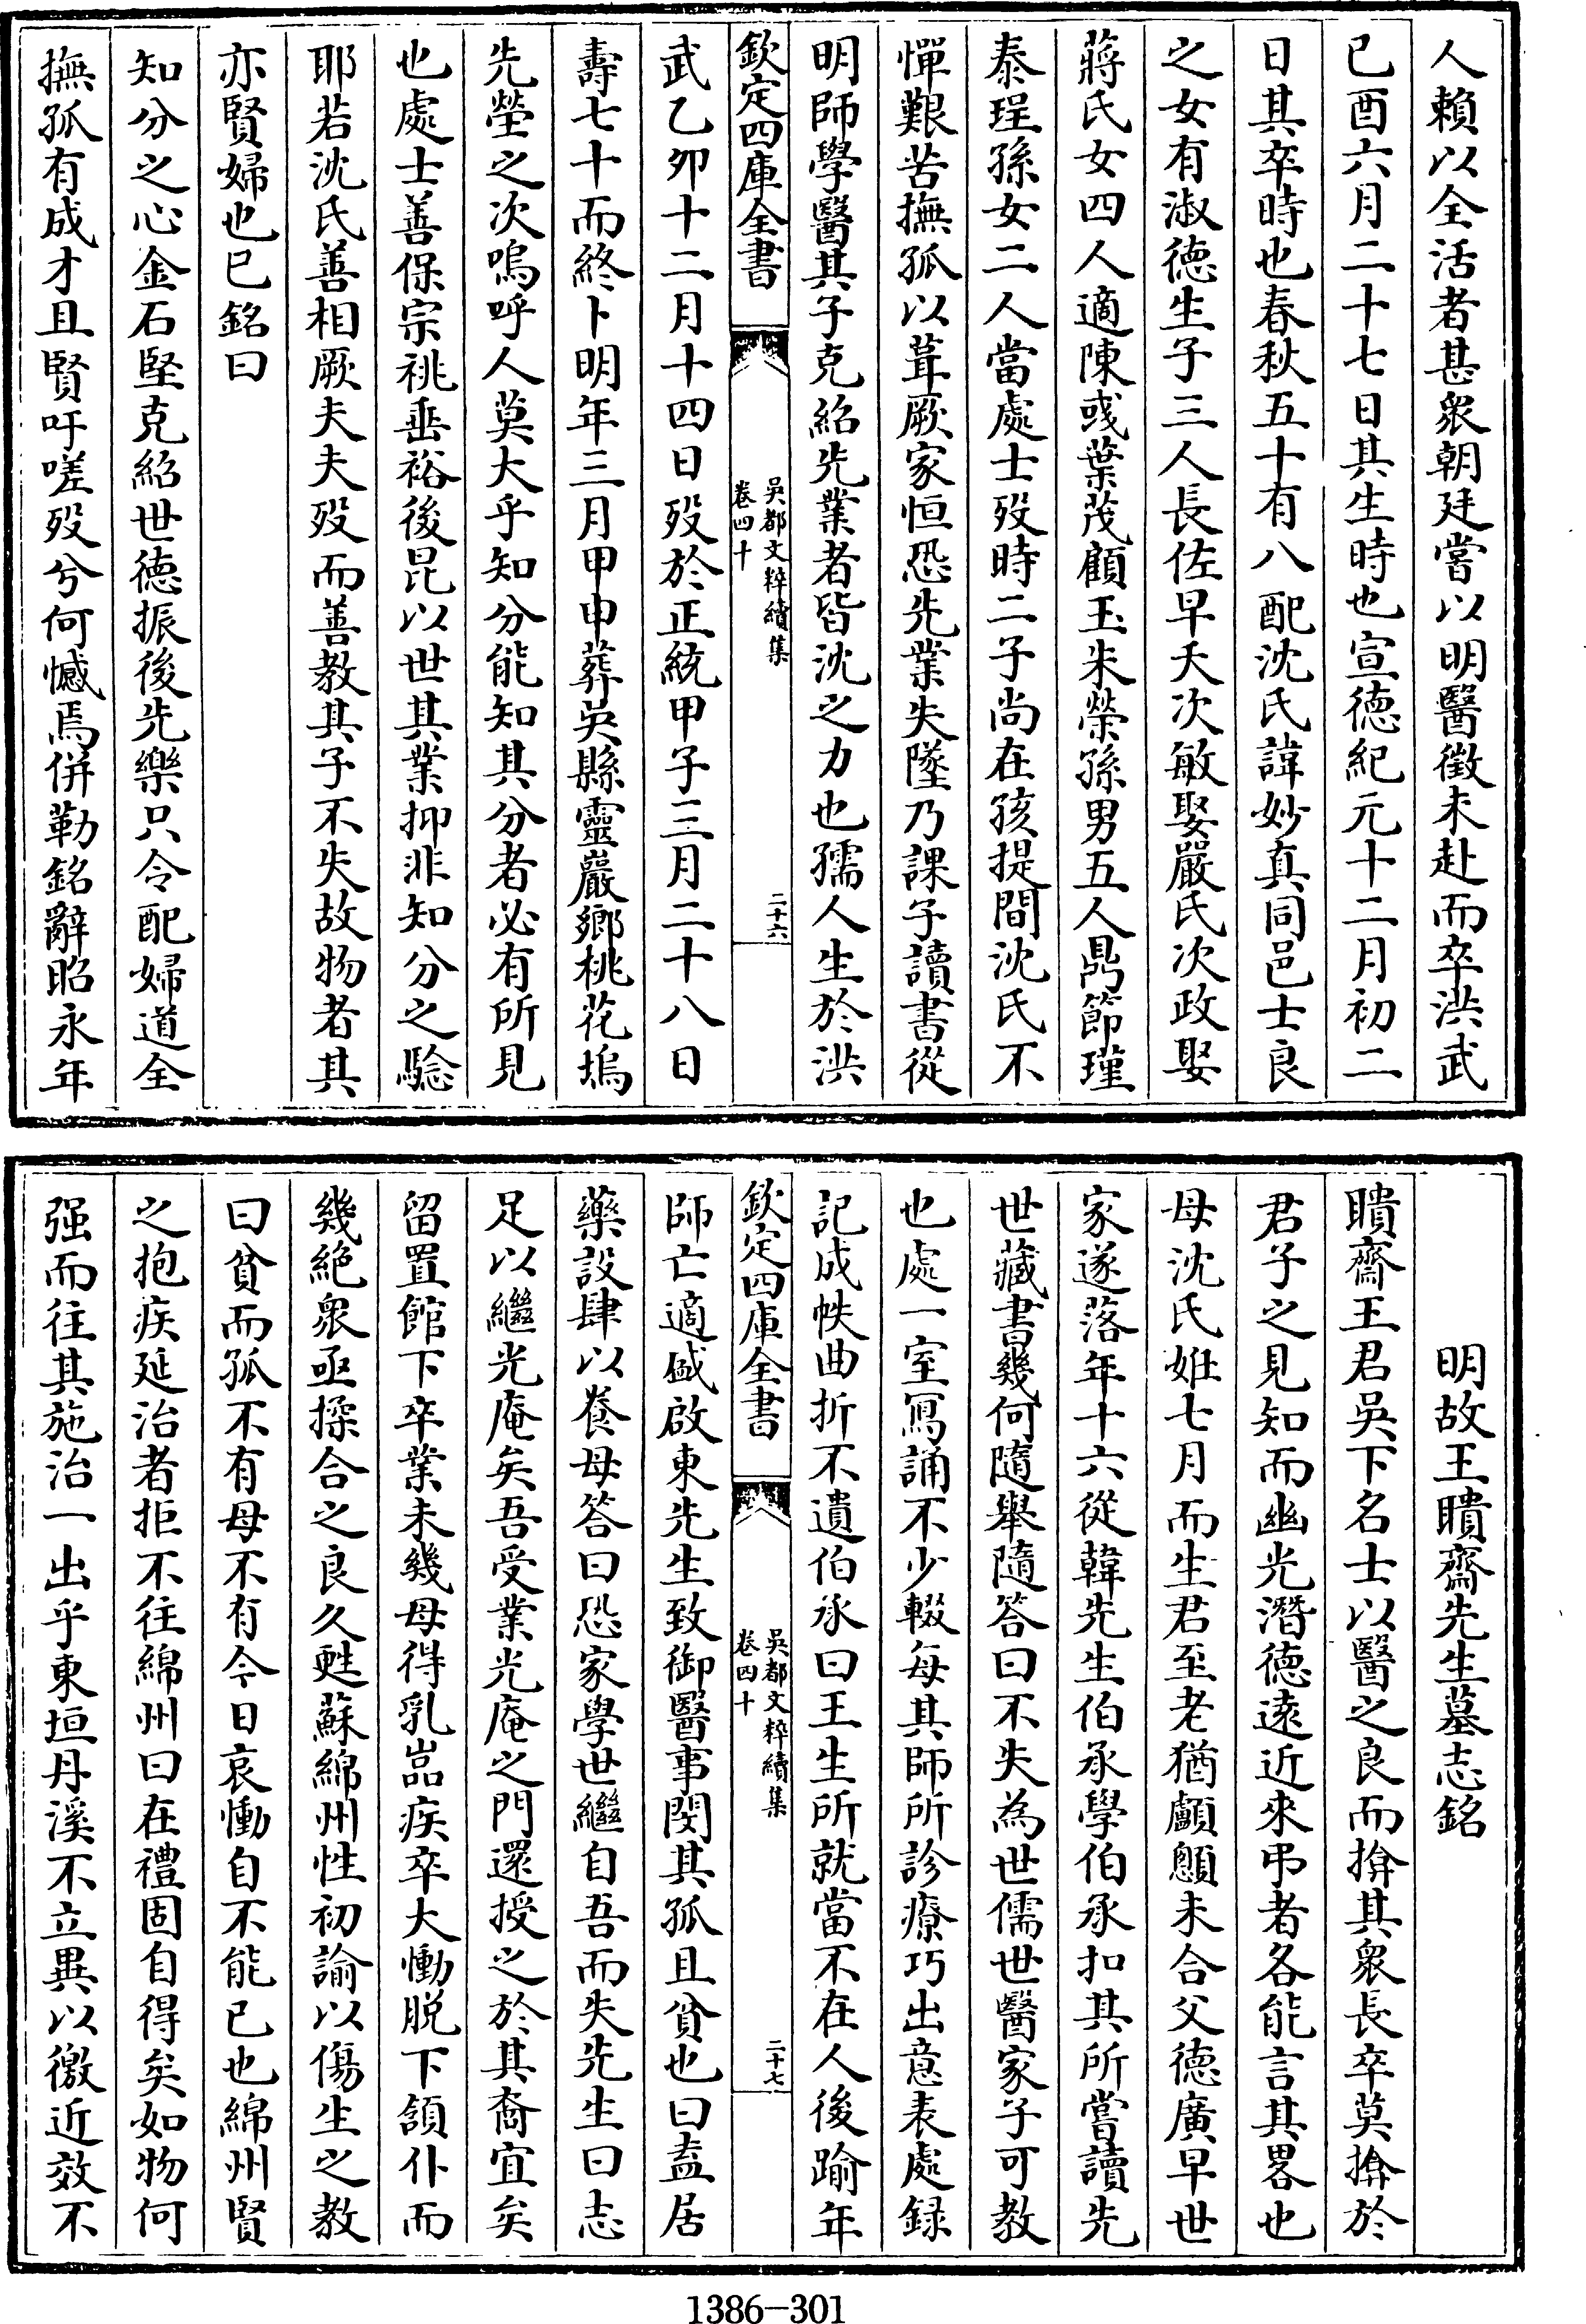 人賴以全活者甚衆朝廷嘗以明醫徵未赴而卒洪武
已酉六月二十七日其生時也宣徳紀元十二月初二
日其卒時也春秋五十有八配沈氏諱妙真同邑士良
之女有淑徳生子三人長佐早夭次敏娶嚴氏次政娶
蔣氏女四人適陳彧葉茂顧玉朱榮孫男五人鼎節瑾
泰珵孫女二人當處士歿時二子尚在孩提間沈氏不
憚艱苦撫孤以葺厥家恒恐先業失墜乃課子讀書從
明師學醫其子克紹先業者皆沈之力也孺人生於洪
欽定四庫全書
吳都文粹續集
卷四十
二十六
武乙夘十二月十四日歿於正統甲子三月二十八日
壽七十而終卜明年三月甲申葬吳縣靈巖鄉桃花塢
先塋之次嗚呼人莫大乎知分能知其分者必有所見
也處士善保宗祧垂裕後昆以世其業抑非知分之騐
耶若沈氏善相厥夫夫歿而善教其子不失故物者其
亦賢婦也已銘曰
知分之心金石堅克紹世徳振後先樂只令配婦道全
撫孤有成才且賢吁嗟歿兮何憾焉併勒銘辭昭永年
明故王聵齋先生墓志銘
聵齋王君吳下名士以醫之良而揜其衆長卒莫揜於
君子之見知而幽光潛徳遠近來弔者各能言其畧也
母沈氏姙七月而生君至老猶顱顖未合父徳廣早世
家遂落年十六從韓先生伯承學伯承扣其所嘗讀先
世藏書幾何隨舉隨答曰不失為世儒世醫家子可教
也處一室寫誦不少輟每其師所診療巧出意表處録
記成帙曲折不遺伯承曰王生所就當不在人後踰年
欽定四庫全書
吳都文粹續集
卷四十
二十七
師亡適盛啟東先生致御醫事閔其孤且貧也曰盍居
藥設肆以養母答曰恐家學世繼自吾而失先生曰志
足以繼光庵矣吾受業光庵之門還授之於其裔宜矣
留置館下卒業未幾母得乳嵒疾卒大慟脱下頷仆而
幾絶衆亟揉合之良久甦蘇綿州性初諭以傷生之教
曰貧而孤不有母不有今日哀慟自不能已也綿州賢
之抱疾延治者拒不往綿州曰在禮固自得矣如物何
强而往其施治一出乎東垣丹溪不立異以徼近效不
1386-301